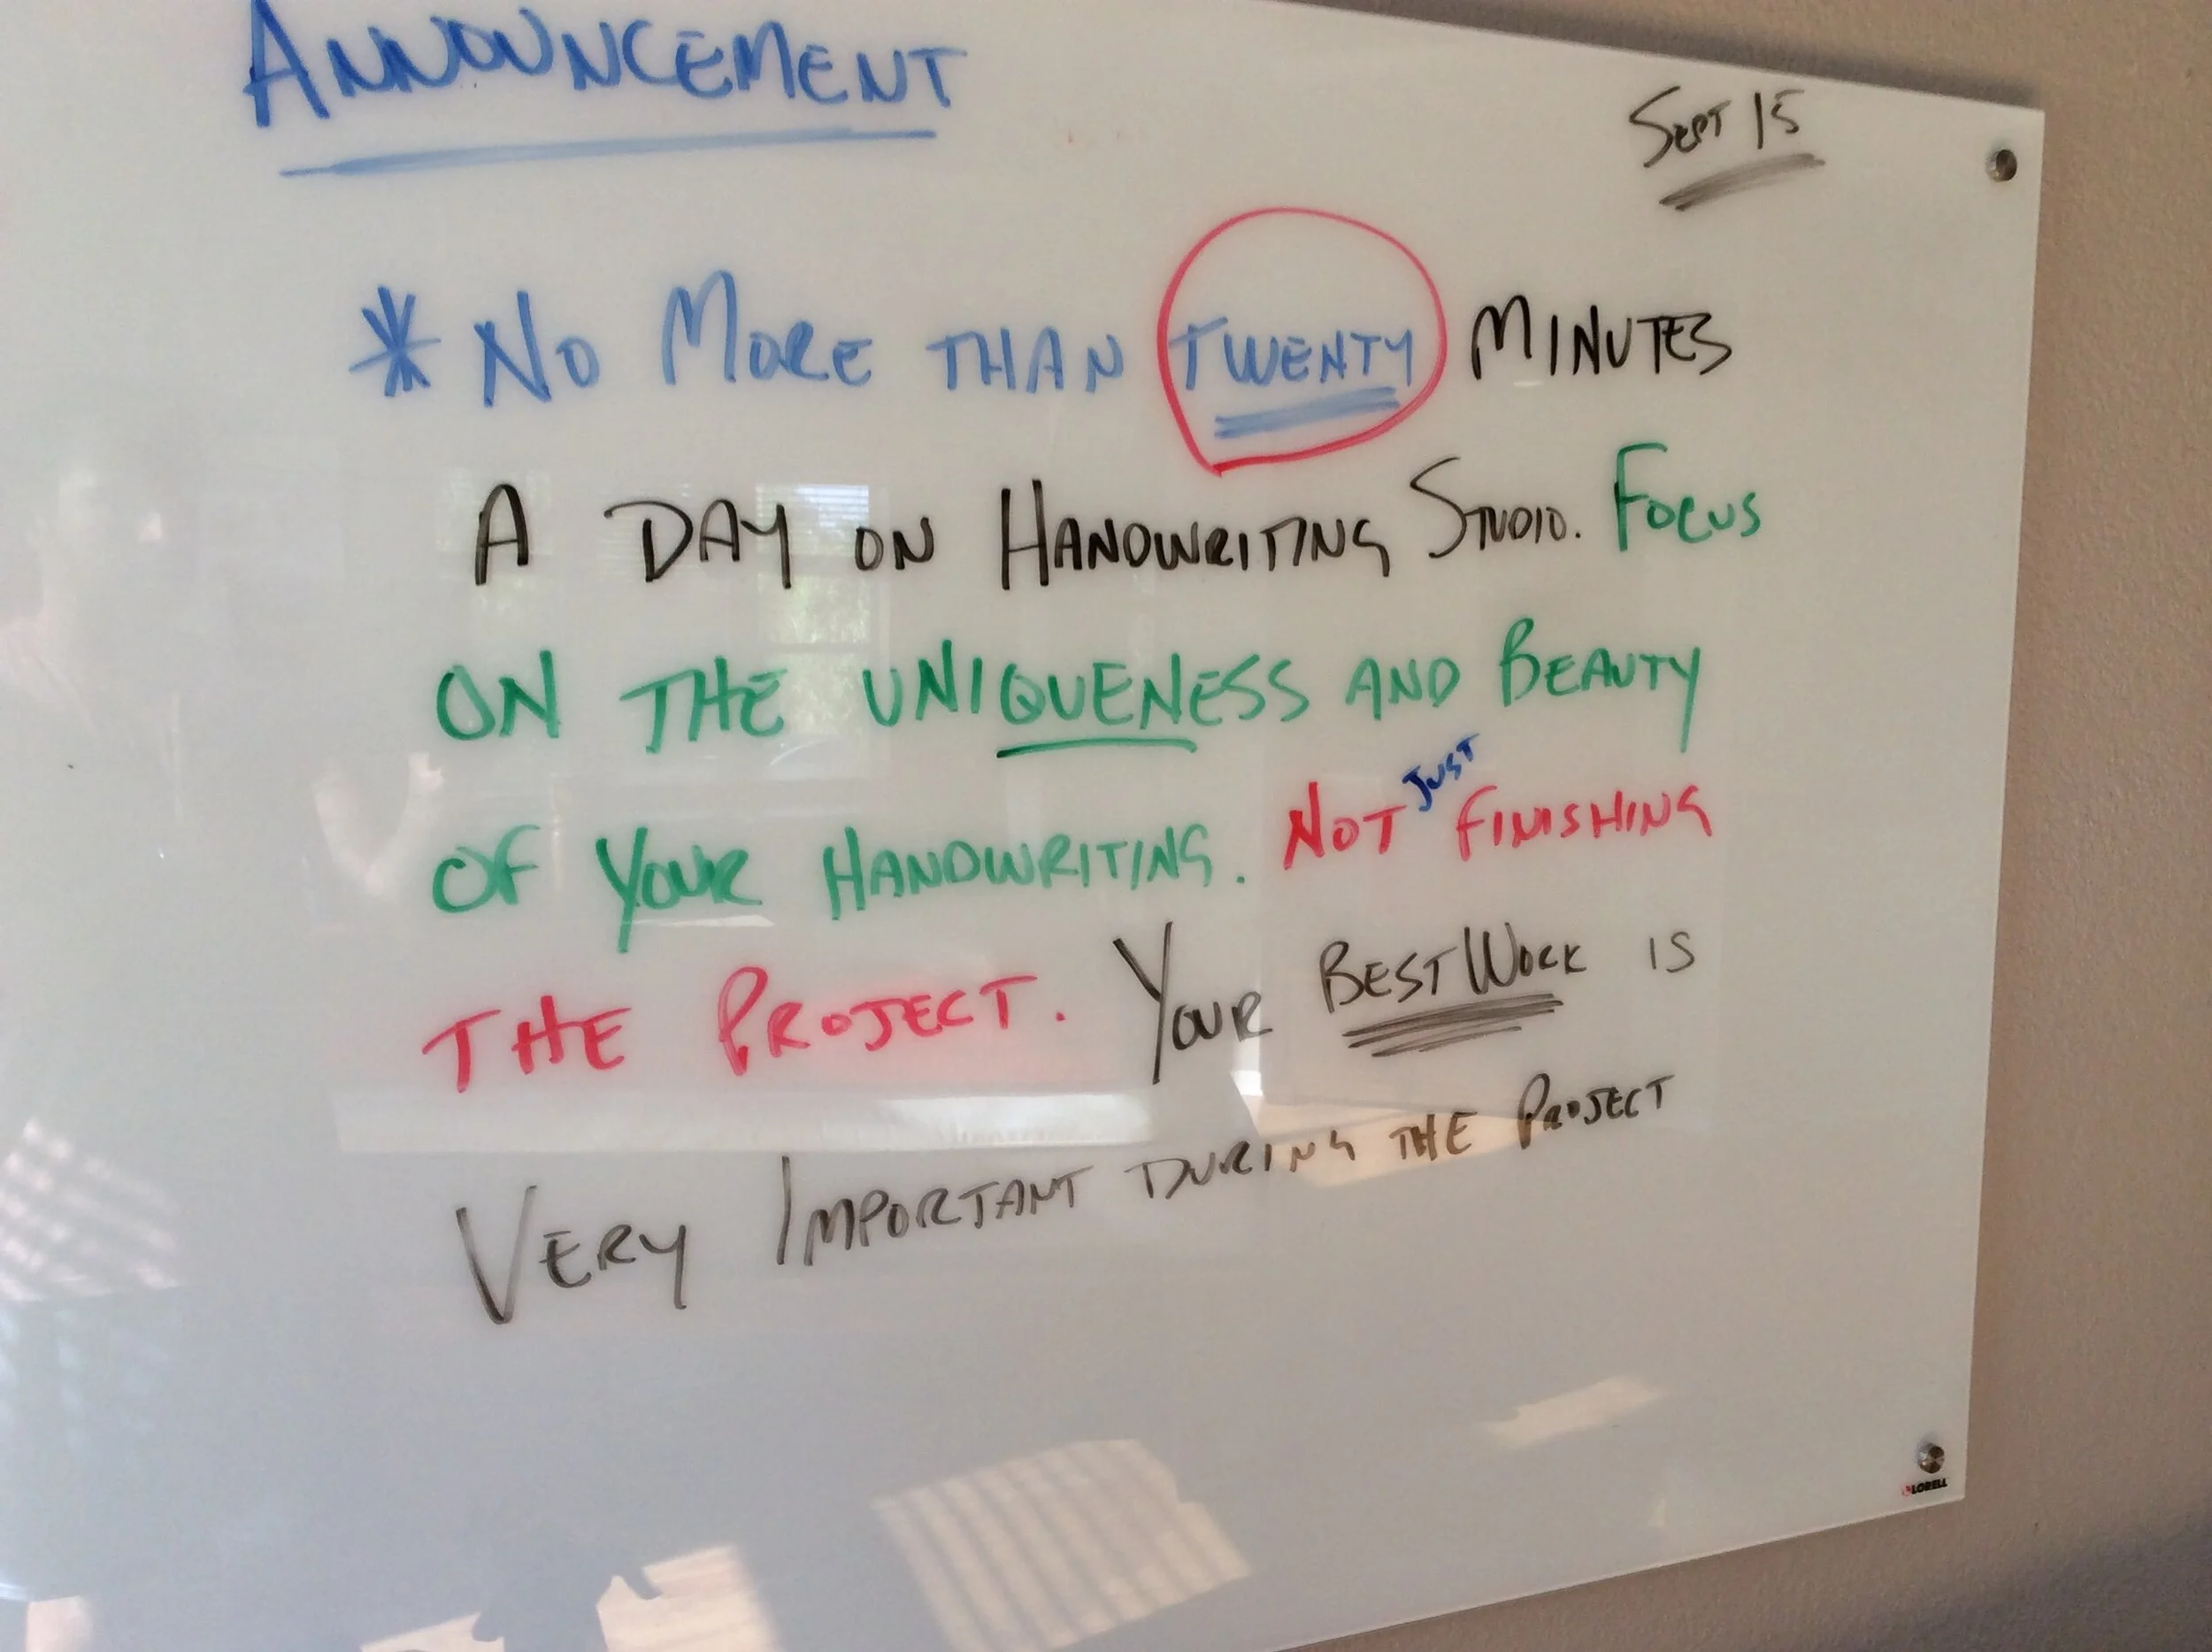 ANNOUNCEMENT
SEPT 15
* NO MORE THAN TWENTY MINUTES
A DAY ON HANDWRITING STUDIO. FOCUS
ON THE UNIQUENESS AND BEAUTY
OF YOUR HANDWRITING. NOT JUST FINISHING
THE PROJECT. YOUR BEST WORK IS
VERY IMPORTANT DURING THE PROJECT
LORELL